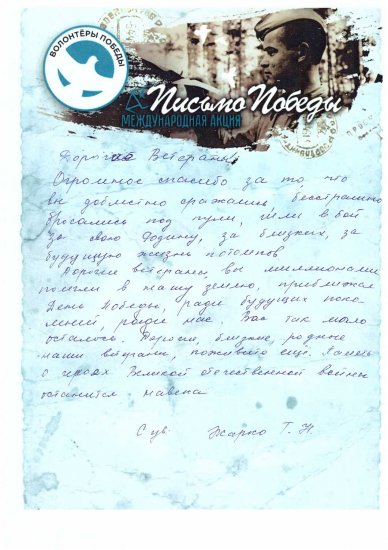 ВОЛОНТЁРЫ ПОБЕДЫ
Письмо Победы
МЕЖДУНАРОДНАЯ АКЦИЯ
Дорогие Ветераны!
Огромное спасибо за то что
вы доблестно сражались, бесстрашно
бросались под пули, шли в бой
за свою Родину, за близких, за
будущую жизнь потомков.
Дорогие ветераны, вы миллионами
полегли в нашу землю, приближая
День Победы, ради будущих поко-
лений, ради нас. Вас так мало
осталось. Дорогие, близкие, родные
наши ветераны, поживите ещё. Память
о героях Великой отечественной войны
останется навека
С ув. Жарко Т. Н.